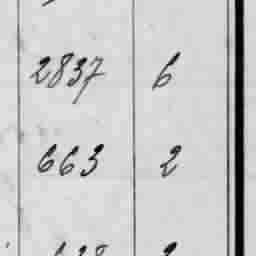 2837 6
663 2